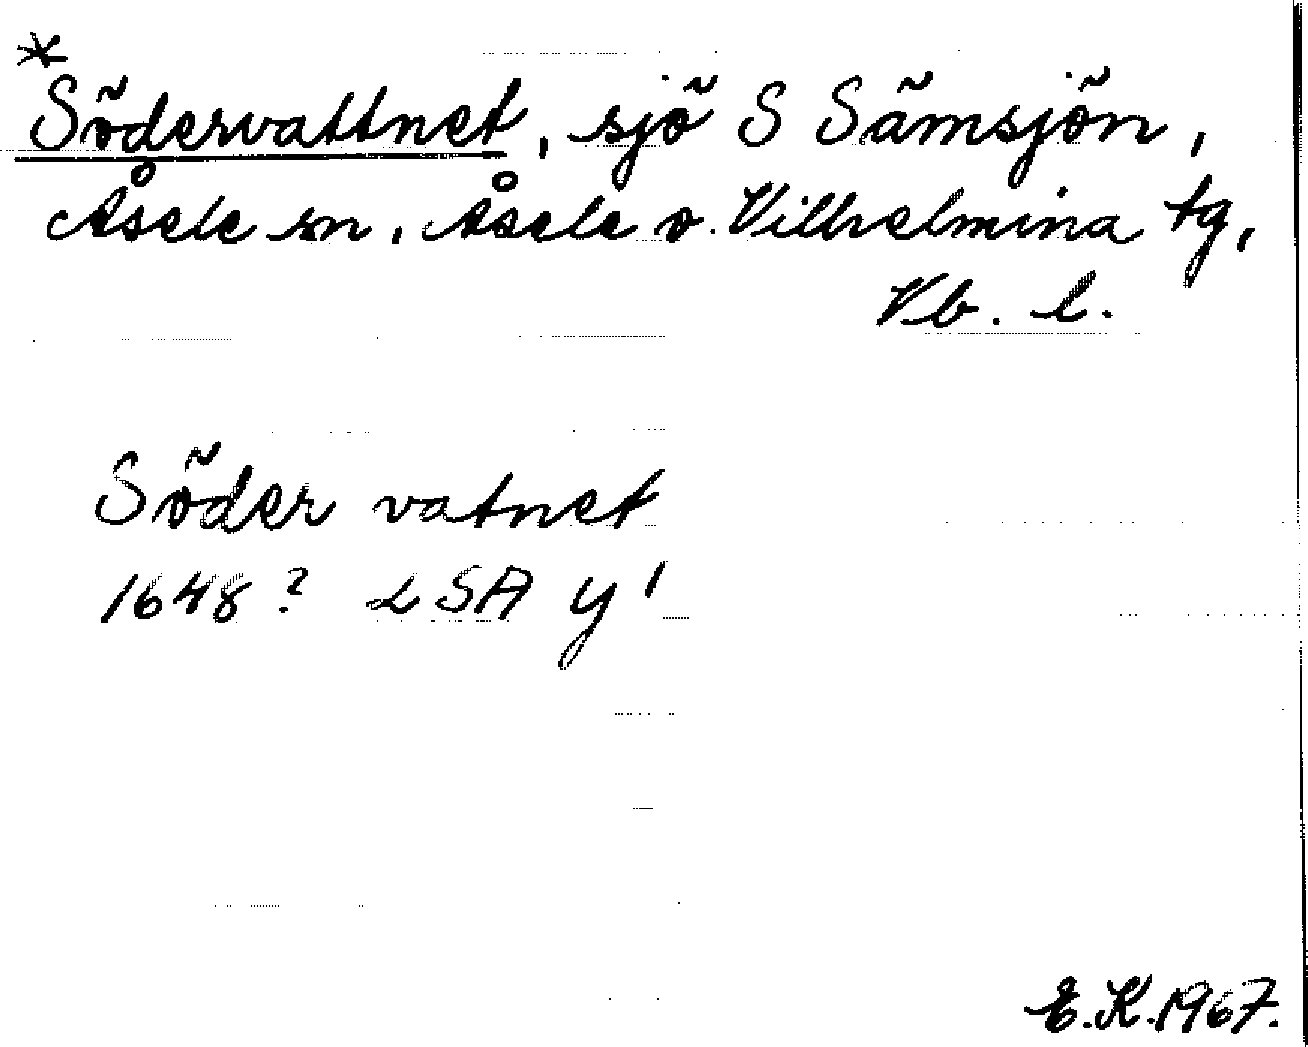 *
Södervattnet, sjö S Sämsjön,
Åsele sn, Åsele o. Vilhelmina tg,
Vb. l.
Söder vatnet
1648? LSA y 1
E.K. 1967.